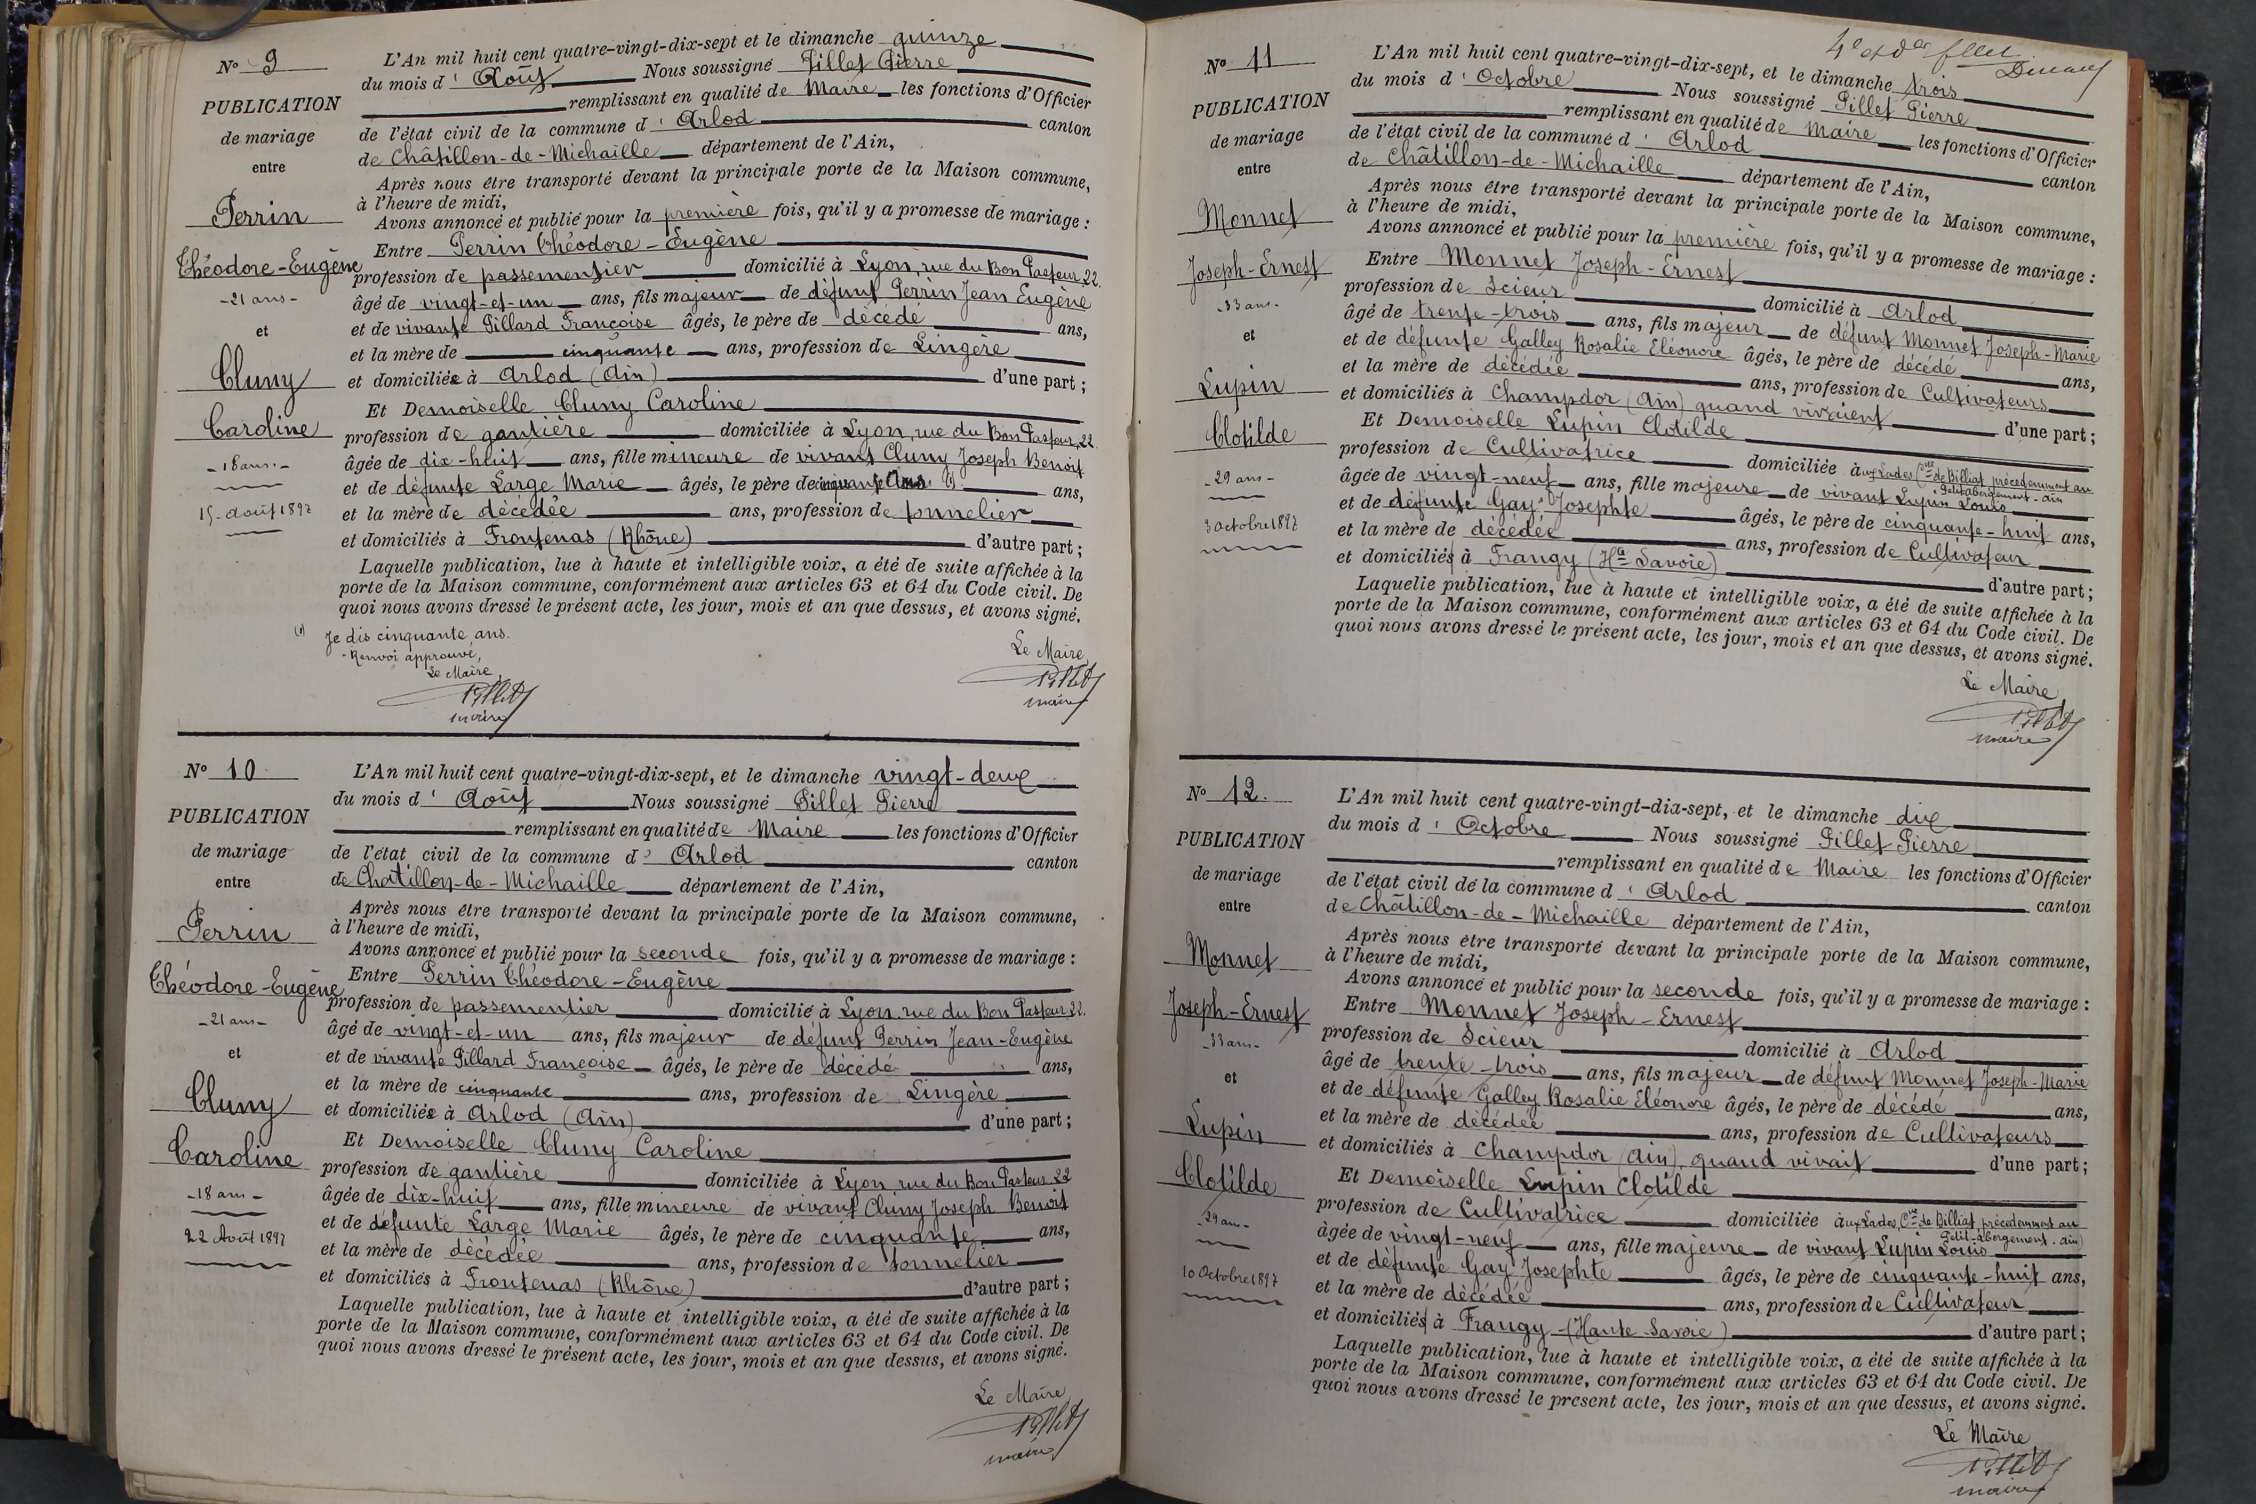 N° 9
PUBLICATION
de mariage
entre
Perrin
Théodore-Eugène
-21 ans-
et
Cluny
Caroline
-18 ans.-
15 août 1897
L'An mil huit cent quatre-vingt-dix-sept et le dimanche quinze
du mois d' Août Nous soussigné Pillet Pierre
remplissant en qualité de Maire les fonctions d'Officier
de l'état civil de la commune d' Arlod canton
de Châtillon-de-Michaille département de l'Ain,
Après nous être transporté devant la principale porte de la Maison commune,
à l'heure de midi,
Avons annoncé et publié pour la première fois, qu'il y a promesse de mariage :
Entre Perrin Théodore-Eugène
profession de passementier domicilié à Lyon, rue du Bon Pasteur 22.
âgé de vingt-et-un ans, fils majeur de défunt Perrin Jean Eugène
et de vivante Pillard Françoise âgés, le père de décédé ans,
et la mère de cinquante ans, profession de Lingère
et domiciliée à Arlod (Ain) d'une part ;
Et Demoiselle Cluny Caroline
profession de gantière domiciliée à Lyon, rue du Bon Pasteur, 22.
âgée de dix-huit ans, fille mineure de vivant Cluny Joseph Benoit
et de défunte Large Marie âgés, le père de cinquante Ans (1) ans,
et la mère de décédée ans, profession de tonnelier
et domiciliés à Frontenas (Rhône) d'autre part ;
Laquelle publication, lue à haute et intelligible voix, a été de suite affichée à la
porte de la Maison commune, conformément aux articles 63 et 64 du Code civil. De
quoi nous avons dressé le présent acte, les jour, mois et an que dessus, et avons signé.
(1) Je dis cinquante ans.
-Renvoi approuvé,
Le Maire,
Pillet
maire
Le Maire,
Pillet
maire
N° 10
PUBLICATION
de mariage
entre
Perrin
Théodore-Eugène
-21 ans-
et
Cluny
Caroline
-18 ans-
22 Août 1897
L'An mil huit cent quatre-vingt-dix-sept, et le dimanche vingt-deux
du mois d' Août Nous soussigné Pillet Pierre
remplissant en qualité de Maire les fonctions d'Officier
de l'état civil de la commune d' Arlod canton
de Chatillon-de-Michaille département de l'Ain,
Après nous être transporté devant la principale porte de la Maison commune,
à l'heure de midi,
Avons annoncé et publié pour la seconde fois, qu'il y a promesse de mariage :
Entre Perrin Théodore-Eugène
profession de passementier domicilié à Lyon, rue du Bon Pasteur 22.
âgé de vingt-et-un ans, fils majeur de défunt Perrin Jean-Eugène
et de vivante Pillard Françoise âgés, le père de décédé ans,
et la mère de cinquante ans, profession de Lingère
et domiciliée à Arlod (Ain) d'une part ;
Et Demoiselle Cluny Caroline
profession de gantière domiciliée à Lyon rue du Bon Pasteur 22
âgée de dix-huit ans, fille mineure de vivant Cluny Joseph Benoit
et de défunte Large Marie âgés, le père de cinquante ans,
et la mère de décédée ans, profession de tonnelier
et domiciliés à Frontenas (Rhône) d'autre part ;
Laquelle publication, lue à haute et intelligible voix, a été de suite affichée à la
porte de la Maison commune, conformément aux articles 63 et 64 du Code civil. De
quoi nous avons dressé le présent acte, les jour, mois et an que dessus, et avons signé.
Le Maire
Pillet
maire
4e et der
N° 11
PUBLICATION
de mariage
entre
Monnet
Joseph-Ernest
-33 ans-
et
Lupin
Clotilde
-29 ans-
3 octobre 1897
L'An mil huit cent quatre-vingt-dix-sept, et le dimanche trois
du mois d' Octobre Nous soussigné Pillet Pierre
remplissant en qualité de Maire les fonctions d'Officier
de l'état civil de la commune d' Arlod canton
de Châtillon-de-Michaille département de l'Ain,
Après nous être transporté devant la principale porte de la Maison commune,
à l'heure de midi,
Avons annoncé et publié pour la première fois, qu'il y a promesse de mariage :
Entre Monnet Joseph-Ernest
profession de Scieur domicilié à Arlod
âgé de trente-trois ans, fils majeur de défunt Monnet Joseph-Marie
et de défunte Galley Rosalie Eléonore âgés, le père de décédé ans,
et la mère de décédée ans, profession de Cultivateurs
et domiciliés à Champdor (Ain) quand vivaient d'une part ;
Et Demoiselle Lupin Clotilde
profession de Cultivatrice domiciliée aux Lades Cne de Billiat, précédemment au
Petit-abergement-ain
âgée de vingt-neuf ans, fille majeure de vivant Lupin Louis
et de défunte Gay Josephte âgés, le père de cinquante-huit ans,
et la mère de décédée ans, profession de Cultivateur
et domiciliés à Frangy (Hte Savoie) d'autre part ;
Laquelle publication, lue à haute et intelligible voix, a été de suite affichée à la
porte de la Maison commune, conformément aux articles 63 et 64 du Code civil. De
quoi nous avons dressé le présent acte, les jour, mois et an que dessus, et avons signé.
Le Maire,
Pillet
maire
N° 12.
PUBLICATION
de mariage
entre
Monnet
Joseph-Ernest
-33 ans-
et
Lupin
Clotilde
-29 ans-
10 Octobre 1897
L'An mil huit cent quatre-vingt-dix-sept, et le dimanche dix
du mois d' Octobre Nous soussigné Pillet Pierre
remplissant en qualité de Maire les fonctions d'Officier
de l'état civil de la commune d' Arlod canton
de Châtillon-de-Michaille département de l'Ain,
Après nous être transporté devant la principale porte de la Maison commune,
à l'heure de midi,
Avons annoncé et publié pour la seconde fois, qu'il y a promesse de mariage :
Entre Monnet Joseph-Ernest
profession de Scieur domicilié à Arlod
âgé de trente-trois ans, fils majeur de défunt Monnet Joseph-Marie
et de défunte Galley Rosalie Eléonore âgés, le père de décédé ans,
et la mère de décédée ans, profession de Cultivateurs
et domiciliés à Champdor (Ain), quand vivait d'une part ;
Et Demoiselle Lupin Clotilde
profession de Cultivatrice domiciliée aux Lades, Cne de Billiat, précédemment au
Petit-abergement-ain)
âgée de vingt-neuf ans, fille majeure de vivant Lupin Louis
et de défunte Gay Josephte âgés, le père de cinquante-huit ans,
et la mère de décédée ans, profession de Cultivateur
et domiciliés à Frangy (Haute-Savoie) d'autre part ;
Laquelle publication, lue à haute et intelligible voix, a été de suite affichée à la
porte de la Maison commune, conformément aux articles 63 et 64 du Code civil. De
quoi nous avons dressé le présent acte, les jour, mois et an que dessus, et avons signé.
Le Maire
Pillet
maire